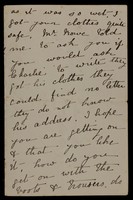 as it was so wet, I
got your clothes quite
safe. Mr. Rowe told
me to ask you if
you would ask
Charlie to write they
got his clothes they
could find no letter
they do not know
his address. I hope
you are getting on
& that you like
it, how do you
get on with the
boots & trousers, do